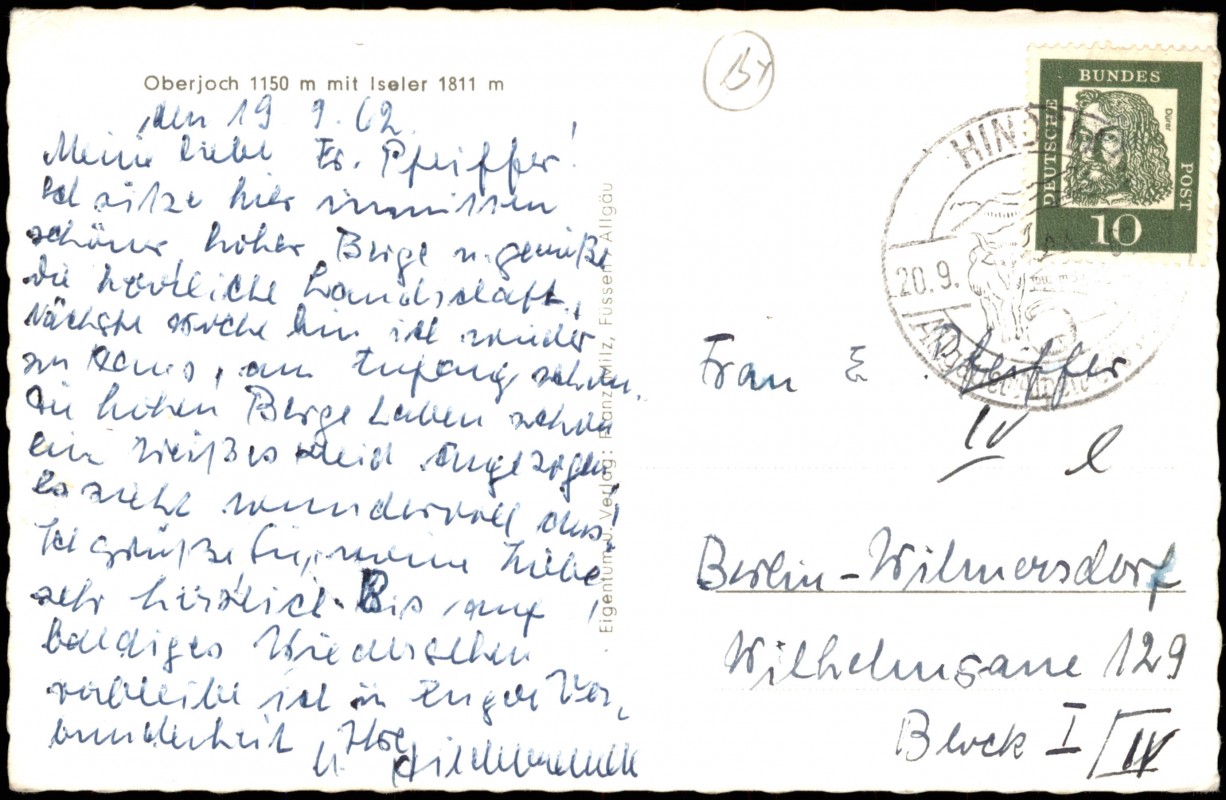 Oberjoch 1150 m mit Iseler 1811 m
den 19. 9. 62.
Meine liebe Fr. Pfeiffer!
Ich sitze hier inmitten
schöner hoher Berge u. genieße
die herrliche Landschaft,
Nächste Woche bin ich wieder
zu Haus, am
die hohen Berge haben schon
ein weißes Kleid angezogen
es sieht wundervoll aus!
Ich grüße Sie, meine Liebe
sehr herzlich. Bis auf
baldiges Wiedersehen
verbleibe ich in enger Ver-
bundenheit Ihre
Eigentum u. Verlag: Franz Milz, Füssen, Allgäu
By
DEUTSCHE BUNDES POST
Dürer
10
20.9.
Frau E. Pfeiffer
IV l
Berlin-Wilmersdorf
Wilhelmsaue 129
Block I/IV